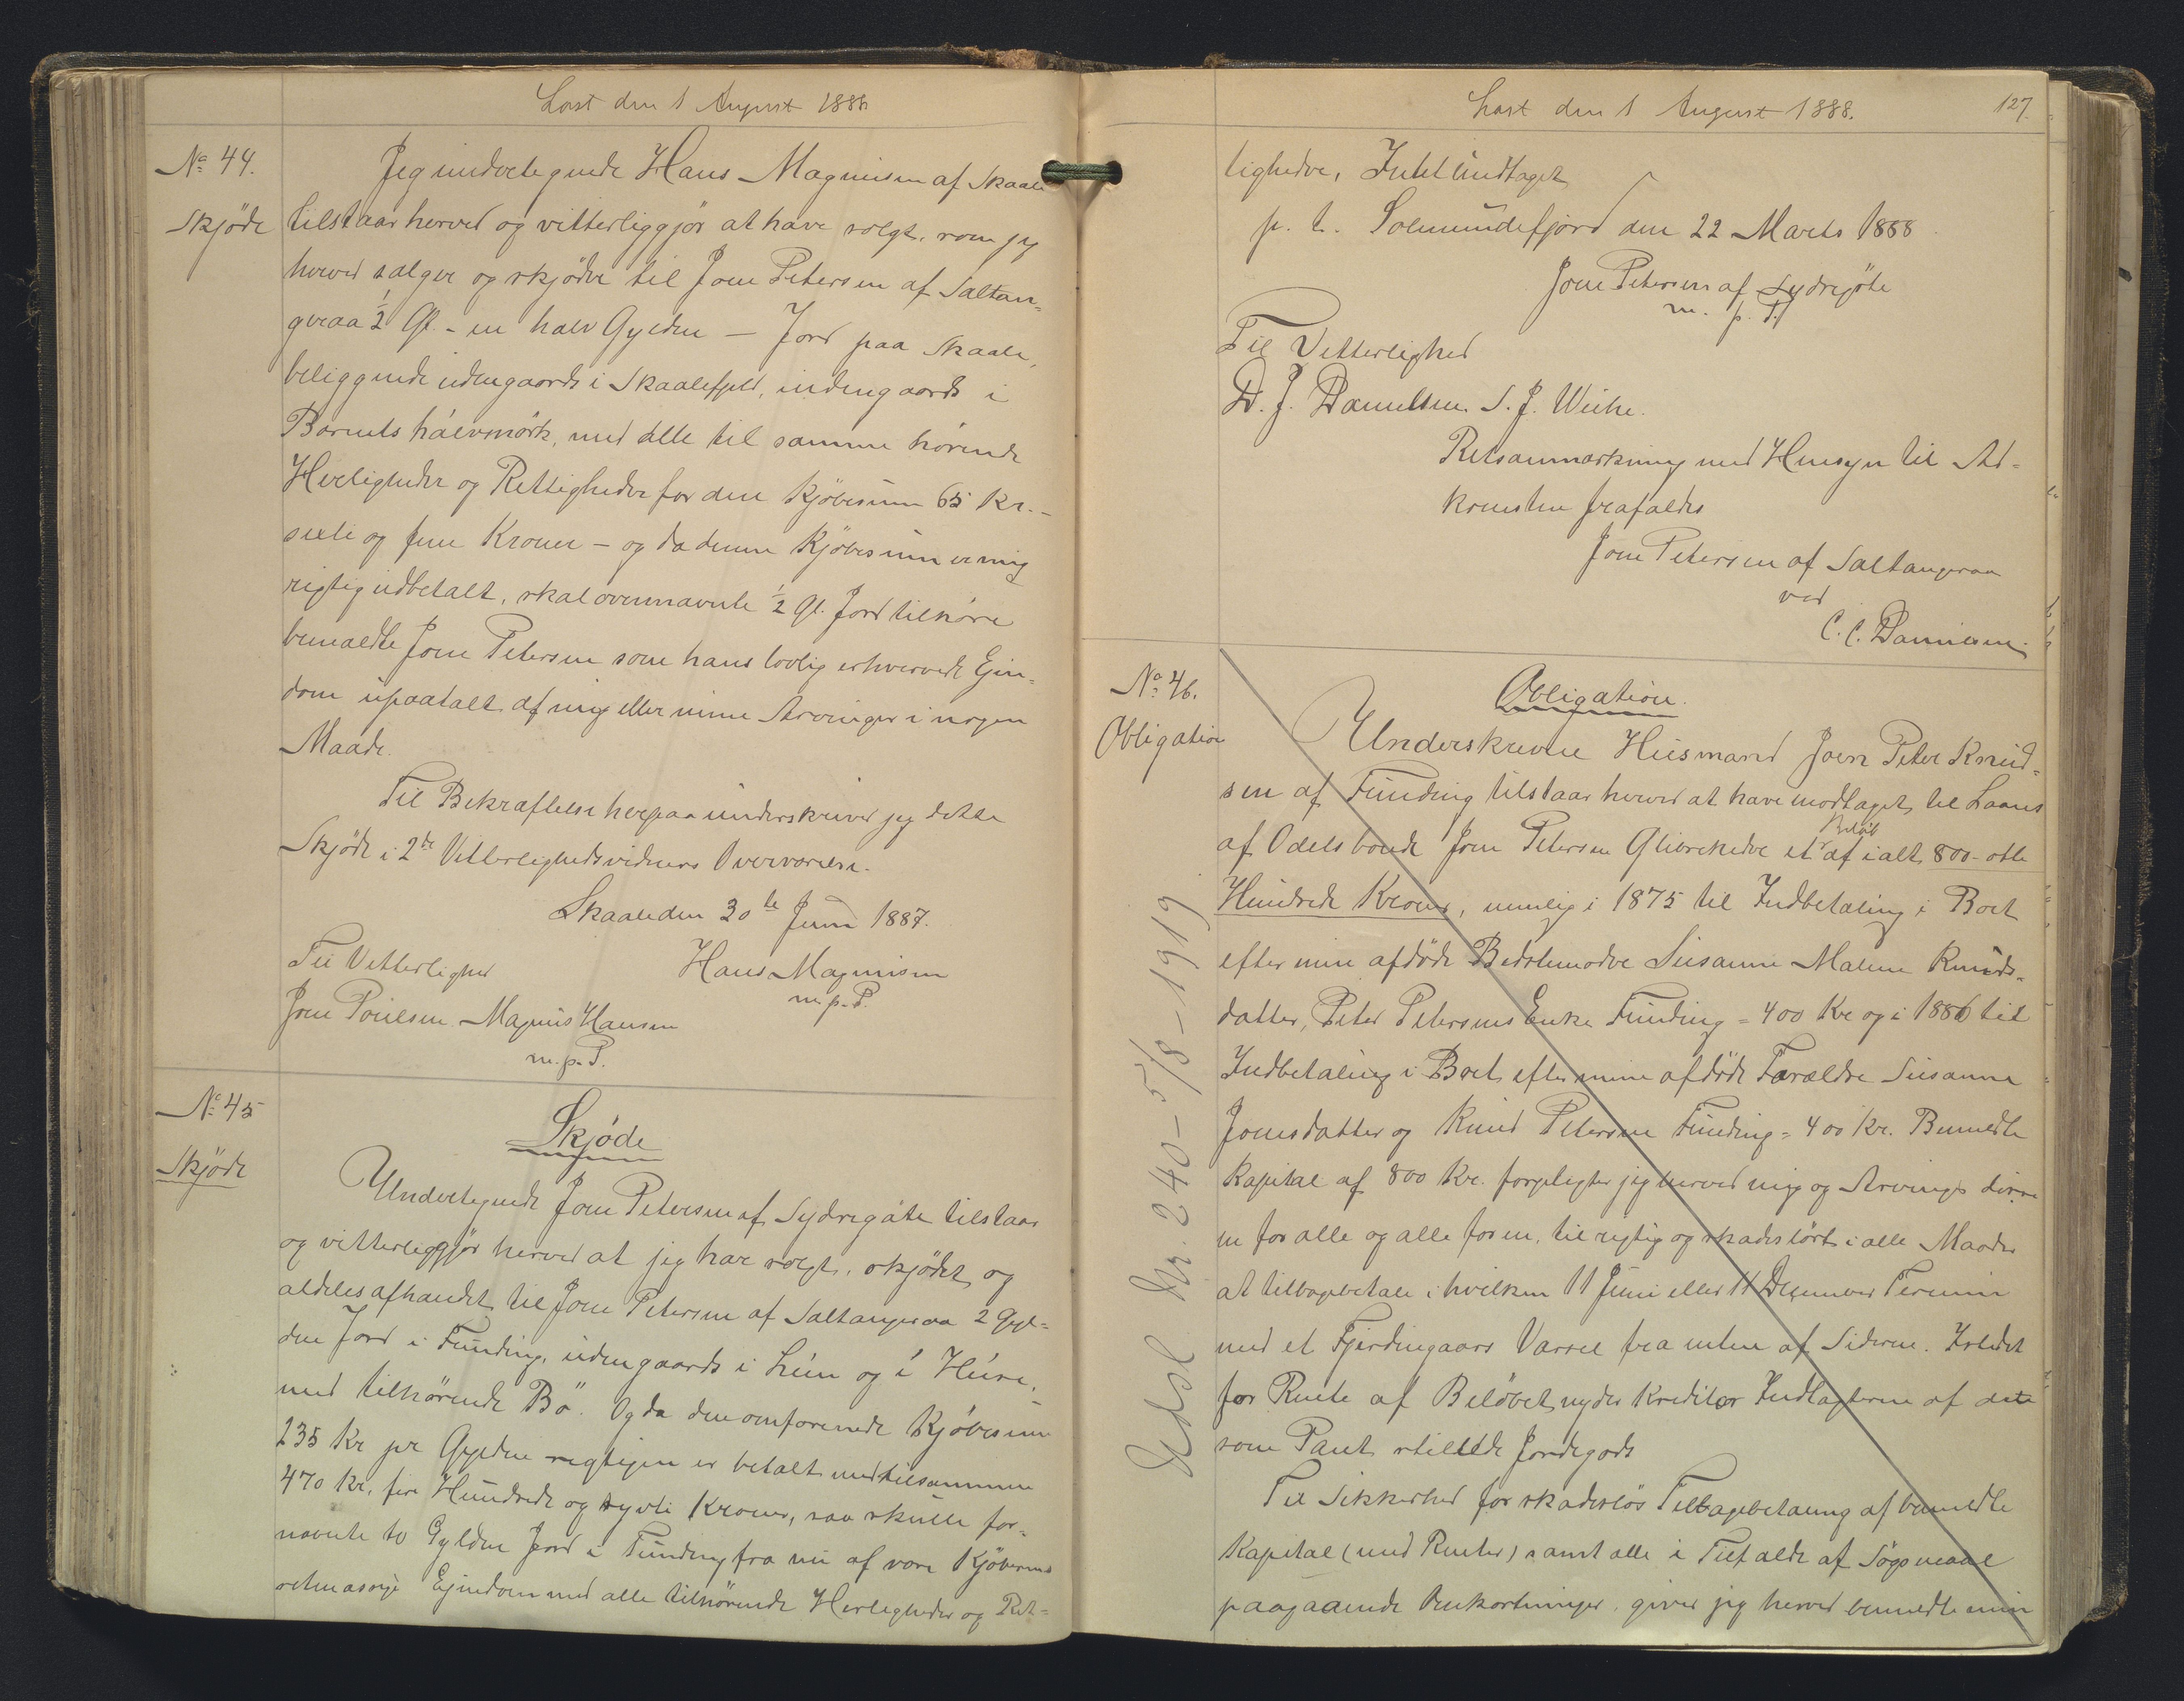 Læst den 1 August 1888
No 44.
Skjöde
Jeg undertegnede Hans Magnusen af Skaale
tilstaar herved og vitterliggjør at have solgt, som jeg
herved sælger og skjöder til Joen Petersen af Saltan-
geraa ½ Gl. - en halv Gylden - Jord paa Skaale,
beliggende udengaards i Skaalefjeld, indengaards i
Barnets hálvmörk, med alle til samme hörende
Herligheder og Rettigheder for den Kjöbesum 65 Kr. -
sexti og fem Kroner - og da denne Kjöbesum er mig
rigtig udbetalt, skal ovennævnte ½ Gl. Jord tilhöre
bemældte Joen Petersen som hans lovlig erhvervede Ejen-
dom upaatalt af mig eller mine Arvinger i nogen
Maade.
Til Bekræftelse herpaa underskriver jeg dette
Skjöde i 2de Vitterlighedsvidners Overværelse.
Skaale den 30te Juni 1887.
Til Vitterlighed
Hans Magnusen
m. p. P.
Joen Poulsen Magnus Hansen
m. p. P.
No 45
Skjöde
Skjøde
Undertegnede Joen Petersen af Sydregöte tilstaar
og vitterliggjör herved at jeg har solgt, skjödet og
aldeles afhændet til Joen Petersen af Saltangeraa 2 Gyl-
den Jord i Funding, udengaards i Lun og i Húse,
med tilhörende Bö. Og da den omforenede Kjöbesum
235 Kr pr Gylden rigtigen er betalt med tilsammen
470 Kr, fire Hundrede og syvti Kroner, saa skulle for-
nævnte to Gylden Jord i Funding fra nu af være Kjöberens
retmæssige Ejendom med alle tilhörende Herligheder og Ret-
Læst den 1 August 1888.
127.
tigheder, Intet undtaget
p. t. Solmundefjord den 22 Marts 1888
Joen Petersen af Sydregöte
m. p. P.
Til Vitterlighed
D. J. Danielsen. S. J. Weihe.
Retsanmærkning med Hensyn til Ad-
komsten frafaldes
Joen Petersen af Saltangeraa
ved
C. C. Danielsen.
No 46.
Obligation
Obligation.
Underskrevne Husmand Joen Peter Knud-
sen af Funding tilstaar herved at have modtaget til Laans
af Odelsbonde Joen Petersen Glibrehedve et Beløb af ialt 800 - otte
Hundrede Kroner, nemlig i 1875 til Indbetaling i Boet
efter min afdöde Bedstemoder Susanne Malene Knuds-
datter, Peter Petersens Enke Funding = 400 Kr og i 1886 til
Indbetaling i Boet efter mine afdöde Forældre Susanne
Joensdatter og Knud Petersen Funding = 400 Kr. Bemeldte
Kapital af 800 Kr. forpligter jeg herved mig og Arvinger
en for alle og alle for en, til rigtig og skadeslöst i alle Maader
at tilbagebetale i hvilken 11 Juni eller 11 December Termin
med et Fjerdingaars Varsel fra enten af Siderne. Istedet
for Rente af Belöbet nyder Kreditor Indtægterne af dette
som Pant stillede Jordegods
Til Sikkerhed for skadeslös Tilbagebetaling af bemeldte
Kapital (med Renter) samt alle i Tilfælde af Sögsmaal
paagaaende Omkostninger, giver jeg herved bemeldte min
Udsl Nr. 240 - 5/8 - 1919